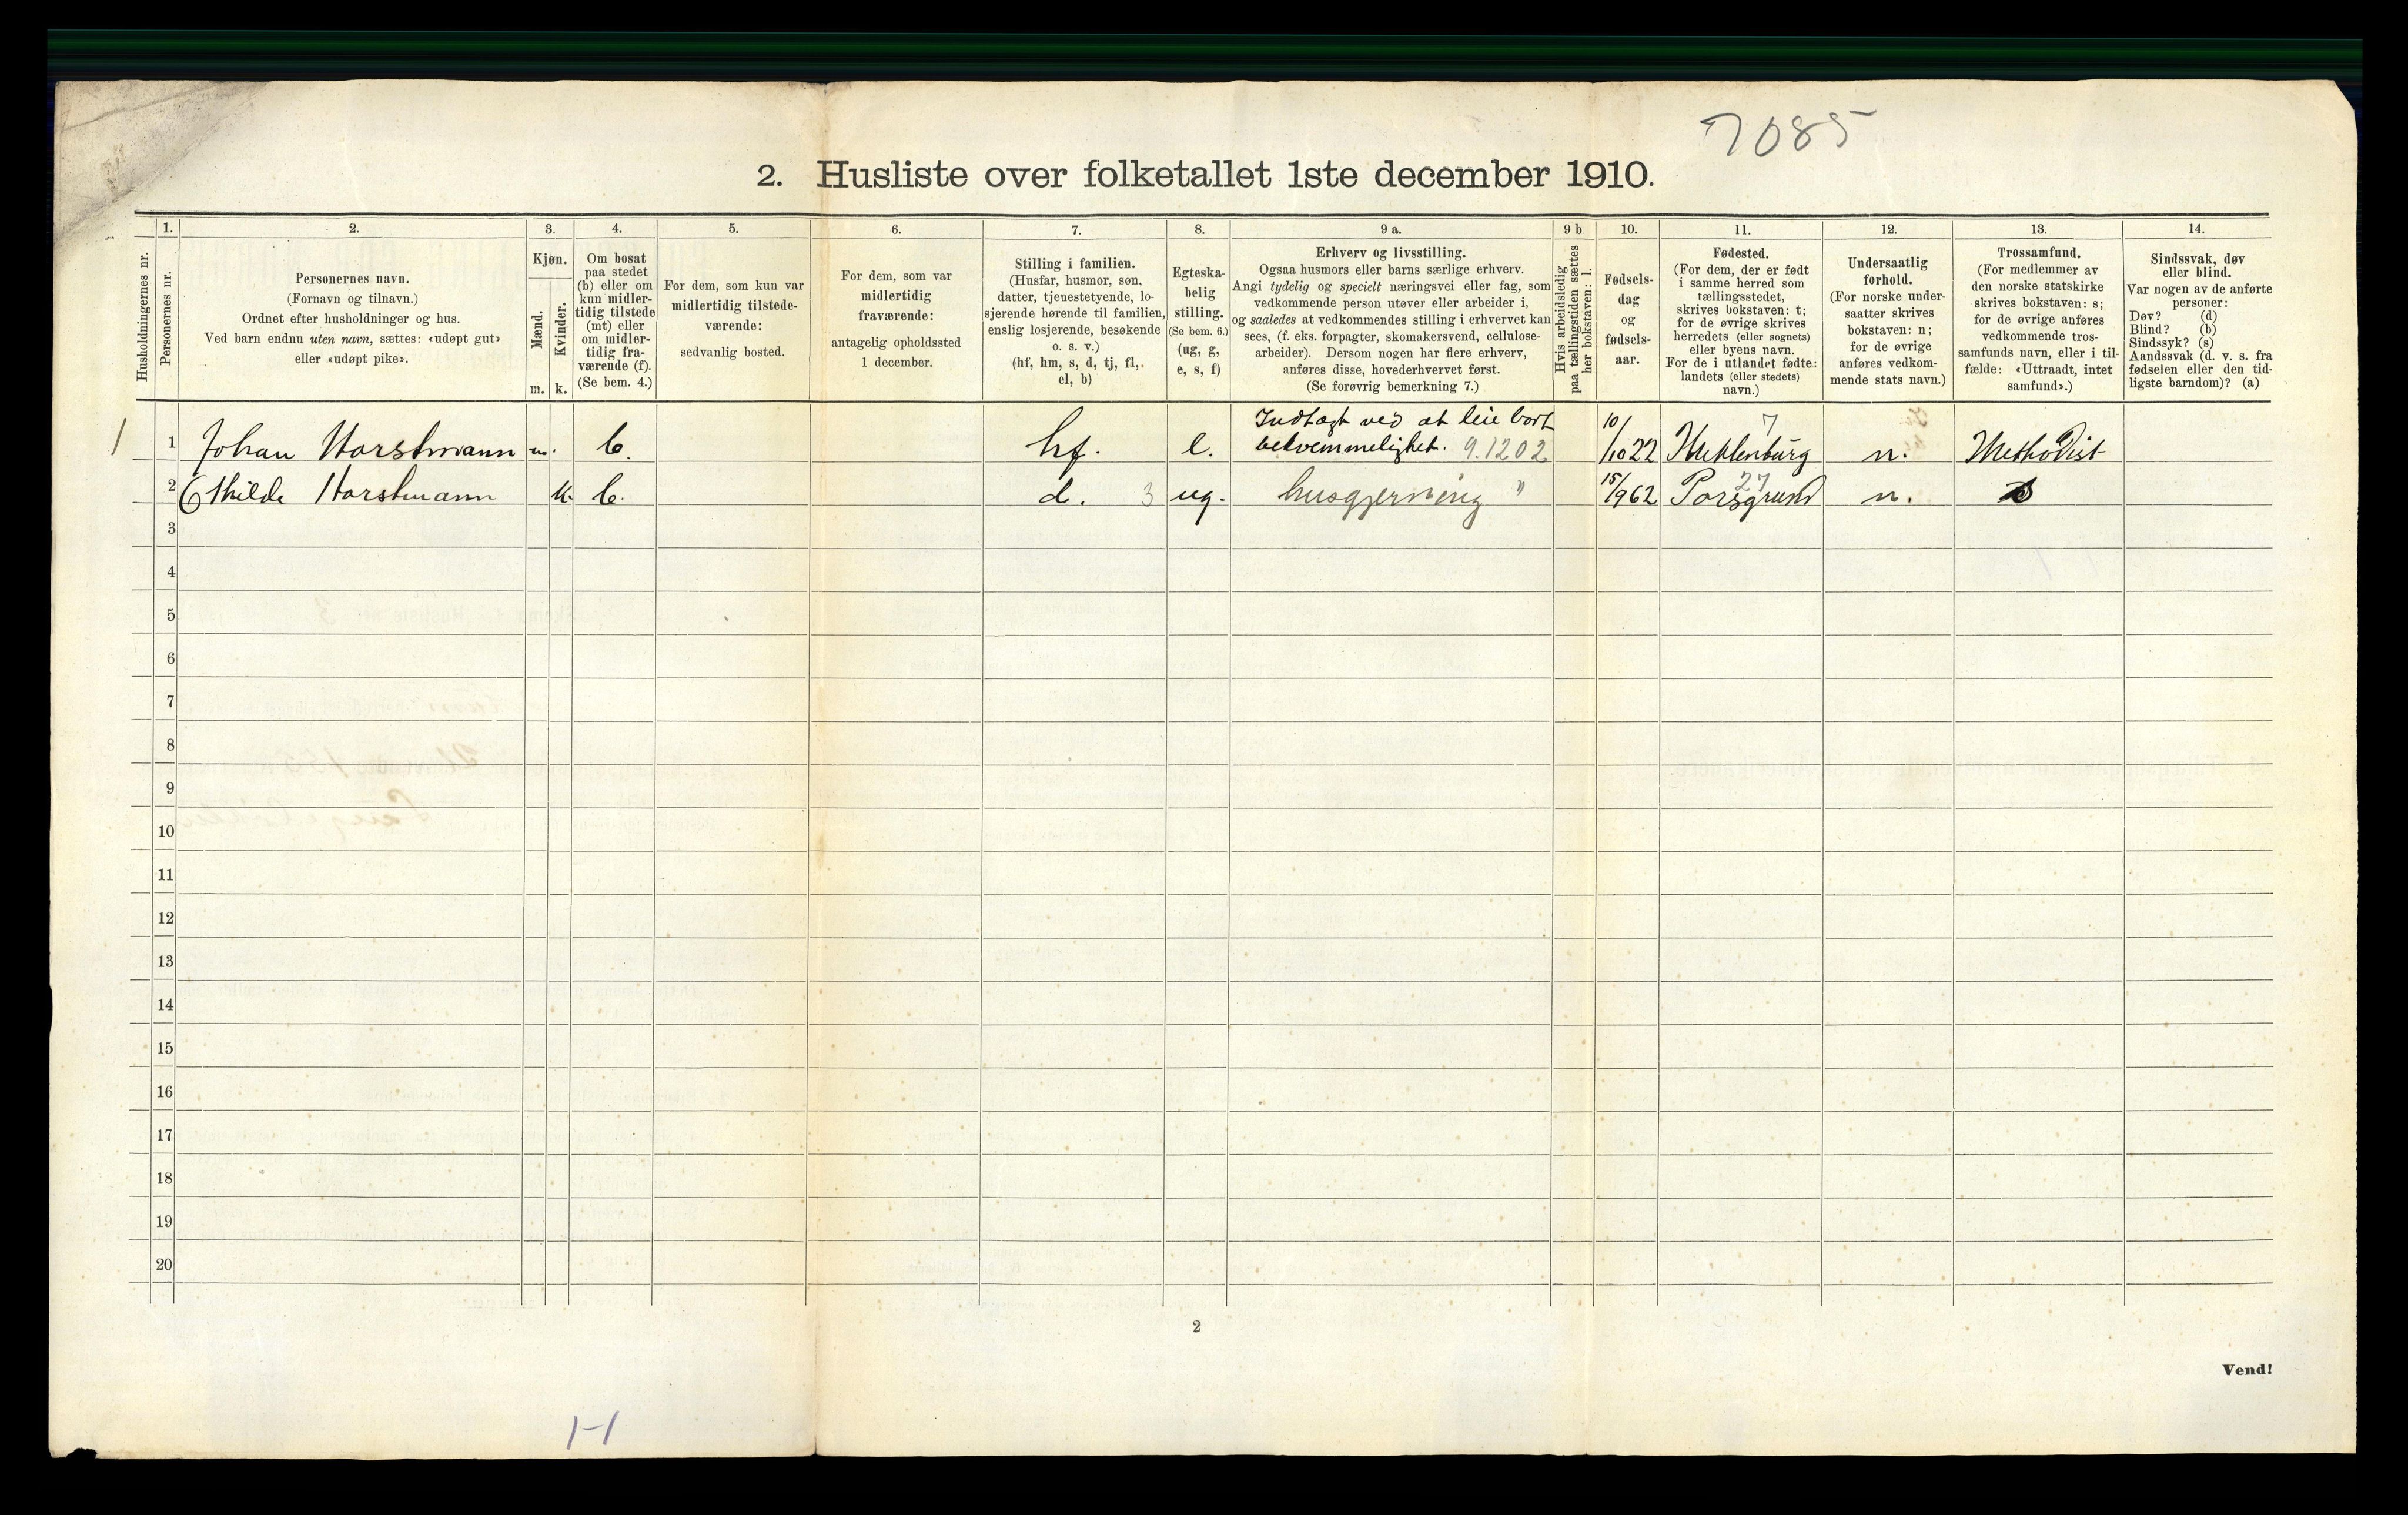 7085
2. Husliste over folketallet 1ste december 1910.
Husholdningernes nr.
1.
Personernes nr.
2.
Personernes navn.
(Fornavn og tilnavn.)
Ordnet efter husholdninger og hus.
Ved barn endnu uten navn, sættes: «udøpt gut»
eller «udøpt pike».
3.
Kjøn.
Mænd.
Kvinder.
m. k.
4.
Om bosat
paa stedet
(b) eller om
kun midler-
tidig tilstede
(mt) eller
om midler-
tidig fra-
værende (f).
(Se bem. 4.)
5.
For dem, som kun var
midlertidig tilstede-
værende:
sedvanlig bosted.
6.
For dem, som var
midlertidig
fraværende:
antagelig opholdssted
1 december.
7.
Stilling i familien.
(Husfar, husmor, søn,
datter, tjenestetyende, lo-
sjerende hørende til familien,
enslig losjerende, besøkende
o. s. v.)
(hf, hm, s, d, tj, fl,
el, b)
8.
Egteska-
belig
stilling.
(Se bem. 6.)
(ug, g,
e, s, f)
9 a.
Erhverv og livsstilling.
Ogsaa husmors eller barns særlige erhverv.
Angi tydelig og specielt næringsvei eller fag, som
vedkommende person utøver eller arbeider i,
og saaledes at vedkommendes stilling i erhvervet kan
sees, (f. eks. forpagter, skomakersvend, cellulose-
arbeider). Dersom nogen har flere erhverv,
anføres disse, hovederhvervet først.
(Se forøvrig bemerkning 7.)
9 b
Hvis arbeidsledig
paa tællingstiden sættes
her bokstaven: l.
10.
Fødsels-
dag
og
fødsels-
aar.
11.
Fødested.
(For dem, der er født
i samme herred som
tællingsstedet,
skrives bokstaven: t;
for de øvrige skrives
herredets (eller sognets)
eller byens navn.
For de i utlandet fødte:
landets (eller stedets)
navn.)
12.
Undersaatlig
forhold.
(For norske under-
saatter skrives
bokstaven: n;
for de øvrige
anføres vedkom-
mende stats navn.)
13.
Trossamfund.
(For medlemmer av
den norske statskirke
skrives bokstaven: s;
for de øvrige anføres
vedkommende tros-
samfunds navn, eller i til-
fælde: «Uttraadt, intet
samfund».)
14.
Sindssvak, døv
eller blind.
Var nogen av de anførte
personer:
Døv? (d)
Blind? (b)
Sindssyk? (s)
Aandssvak (d. v. s. fra
fødselen eller den tid-
ligste barndom)? (a)
1 1 Johan Horstmann m. b. hf. e. Indtægt ved at leie bort bekvemmelighet. 9.1202 10/10 22 7 Meklenburg n. Methodist
2 Thilde Horstmann k. b. d. 3 ug. husgjerning " 15/9 62 27 Porsgrund n. s
3
4
5
6
7
8
9
10
11
12
13
14
15
16
17
18
19
20
2
Vend!
1-1